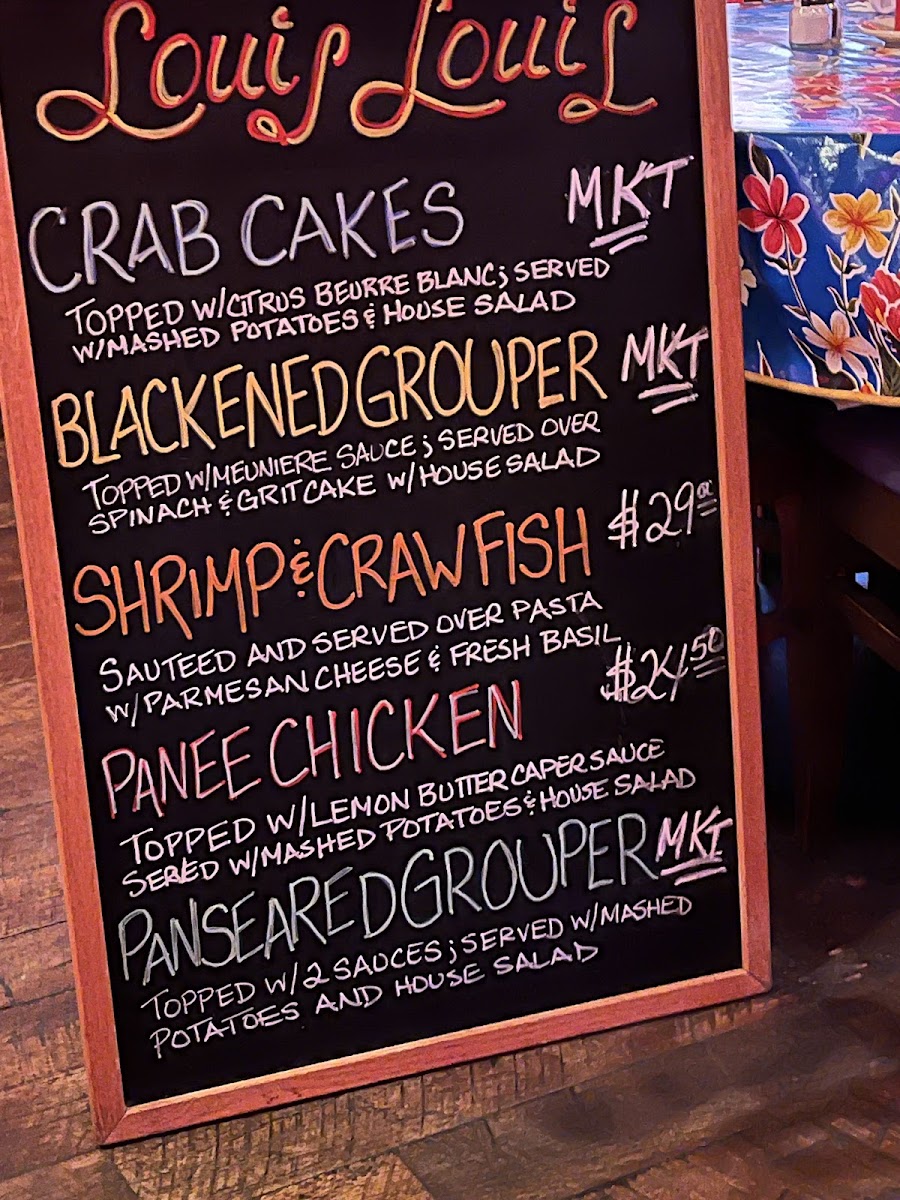 Louis Louis
CRAB CAKES MKT
TOPPED W/CITRUS BEURRE BLANC; SERVED
W/MASHED POTATOES & HOUSE SALAD
BLACKENED GROUPER MKT
TOPPED W/MEUNIERE SAUCE; SERVED OVER
SPINACH & GRIT CAKE W/HOUSE SALAD
SHRIMP & CRAWFISH $29
SAUTEED AND SERVED OVER PASTA
W/PARMESAN CHEESE & FRESH BASIL
PANEE CHICKEN $24.50
TOPPED W/LEMON BUTTER CAPER SAUCE
SERVED W/MASHED POTATOES & HOUSE SALAD
PANSEARED GROUPER MKT
TOPPED W/2 SAUCES; SERVED W/MASHED
POTATOES AND HOUSE SALAD